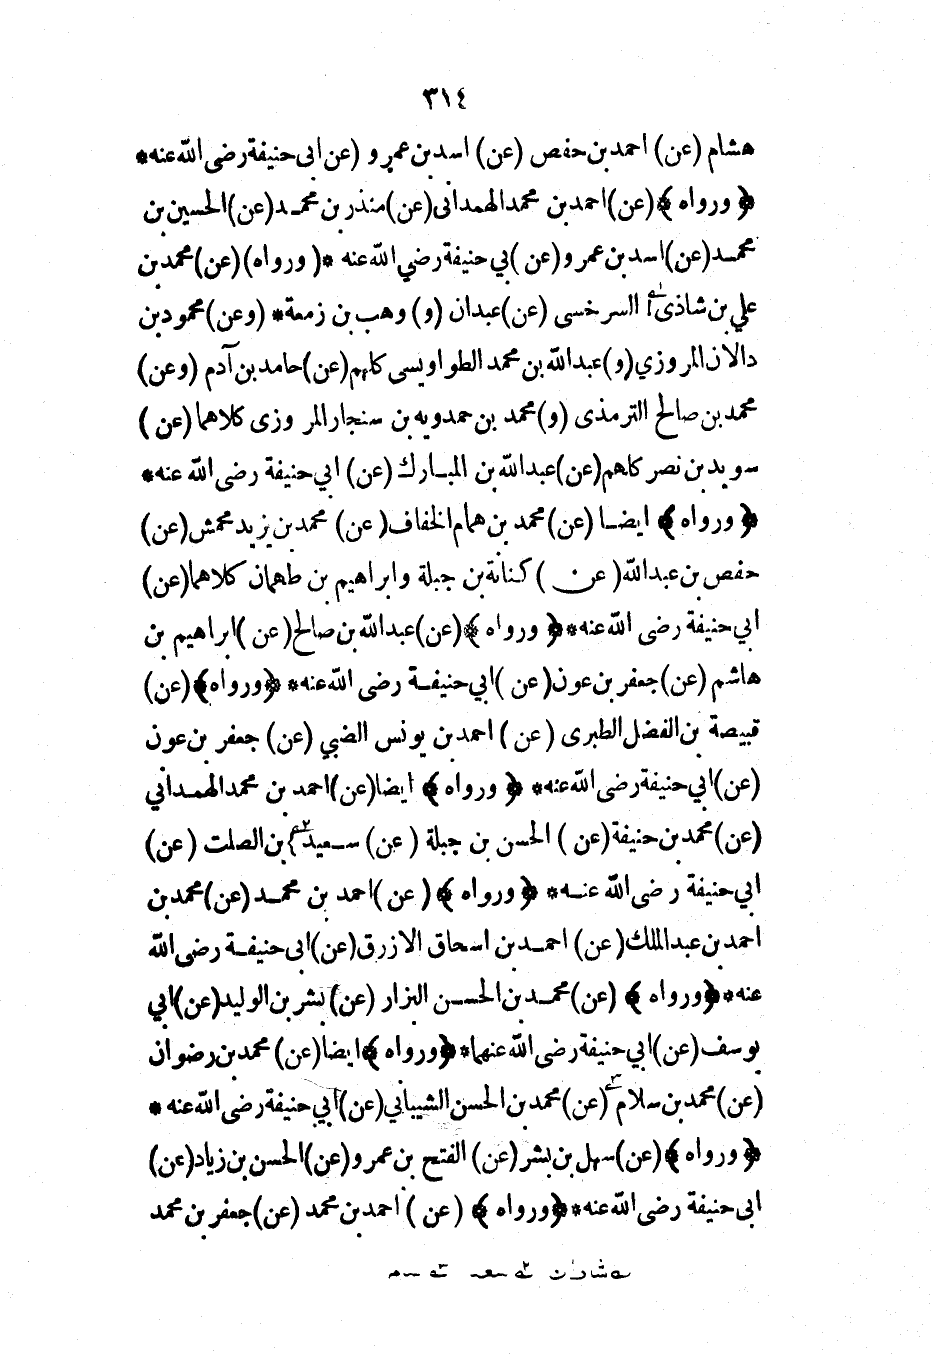 ٣١٤
هشام (عن) احمد بن حفص (عن) اسد بن عمرو (عن ابى حنيفة رضى الله عنه*
﴿ ورواه ﴾ (عن) احمد بن محمد الهمدانى (عن) منذر بن محمد (عن) الحسين بن
محمد (عن) اسد بن عمرو (عن) بي حنيفة رضي الله عنه * ( ورواه) (عن) محمد بن
علي بن شاذى السرخسى (عن) عبدان (و) وهب بن زمعة* (وعن) محمود بن
دالان المروزي (و) عبد الله بن محمد الطواويسى كلهم (عن) حامد بن آدم (وعن)
محمد بن صالح الترمذى (و) محمد بن حمدويه بن سنجار المروزى كلاهما (عن)
سويد بن نصر كلهم (عن) عبد الله بن المبارك (عن) ابي حنيفة رضى الله عنه*
﴿ ورواه ﴾ ايضا (عن) محمد بن همام الخفاف (عن) محمد بن يزيد محمش (عن)
حفص بن عبد الله (عن) كنانة بن جبلة وابراهيم بن طهمان كلاهما (عن)
ابي حنيفة رضى الله عنه* ﴿ ورواه ﴾ (عن) عبد الله بن صالح (عن) ابراهيم بن
هاشم (عن) جعفر بن عون (عن) ابي حنيفة رضى الله عنه* ﴿ورواه﴾ (عن)
قبيصة بن الفضل الطبرى (عن) احمد بن يونس الضبي (عن) جعفر بن عون
(عن) ابي حنيفة رضى الله عنه* ﴿ ورواه ﴾ ايضا (عن) احمد بن محمد الهمداني
(عن) محمد بن حنيفة (عن) الحسن بن جبلة (عن) سعيد٢ بن الصلت (عن)
ابي حنيفة رضى الله عنه* ﴿ ورواه ﴾ (عن) احمد بن محمد (عن) محمد بن
احمد بن عبد الملك (عن) احمد بن اسحاق الازرق (عن) ابى حنيفة رضى الله
عنه* ﴿ورواه ﴾ (عن) محمد بن الحسن البزار (عن) بشر بن الوليد (عن) ابي
يوسف (عن) ابي حنيفة رضى الله عنهما* ﴿ورواه ﴾ ايضا (عن) محمد بن رضوان
(عن) محمد بن سلام٣ (عن) محمد بن الحسن الشيباني (عن) ابي حنيفة رضى الله عنه *
﴿ ورواه ﴾ (عن) سهل بن بشر (عن) الفتح بن عمرو (عن) الحسن بن زياد (عن)
ابى حنيفة رضى الله عنه* ﴿ورواه ﴾ (عن) احمد بن محمد (عن) جعفر بن محمد